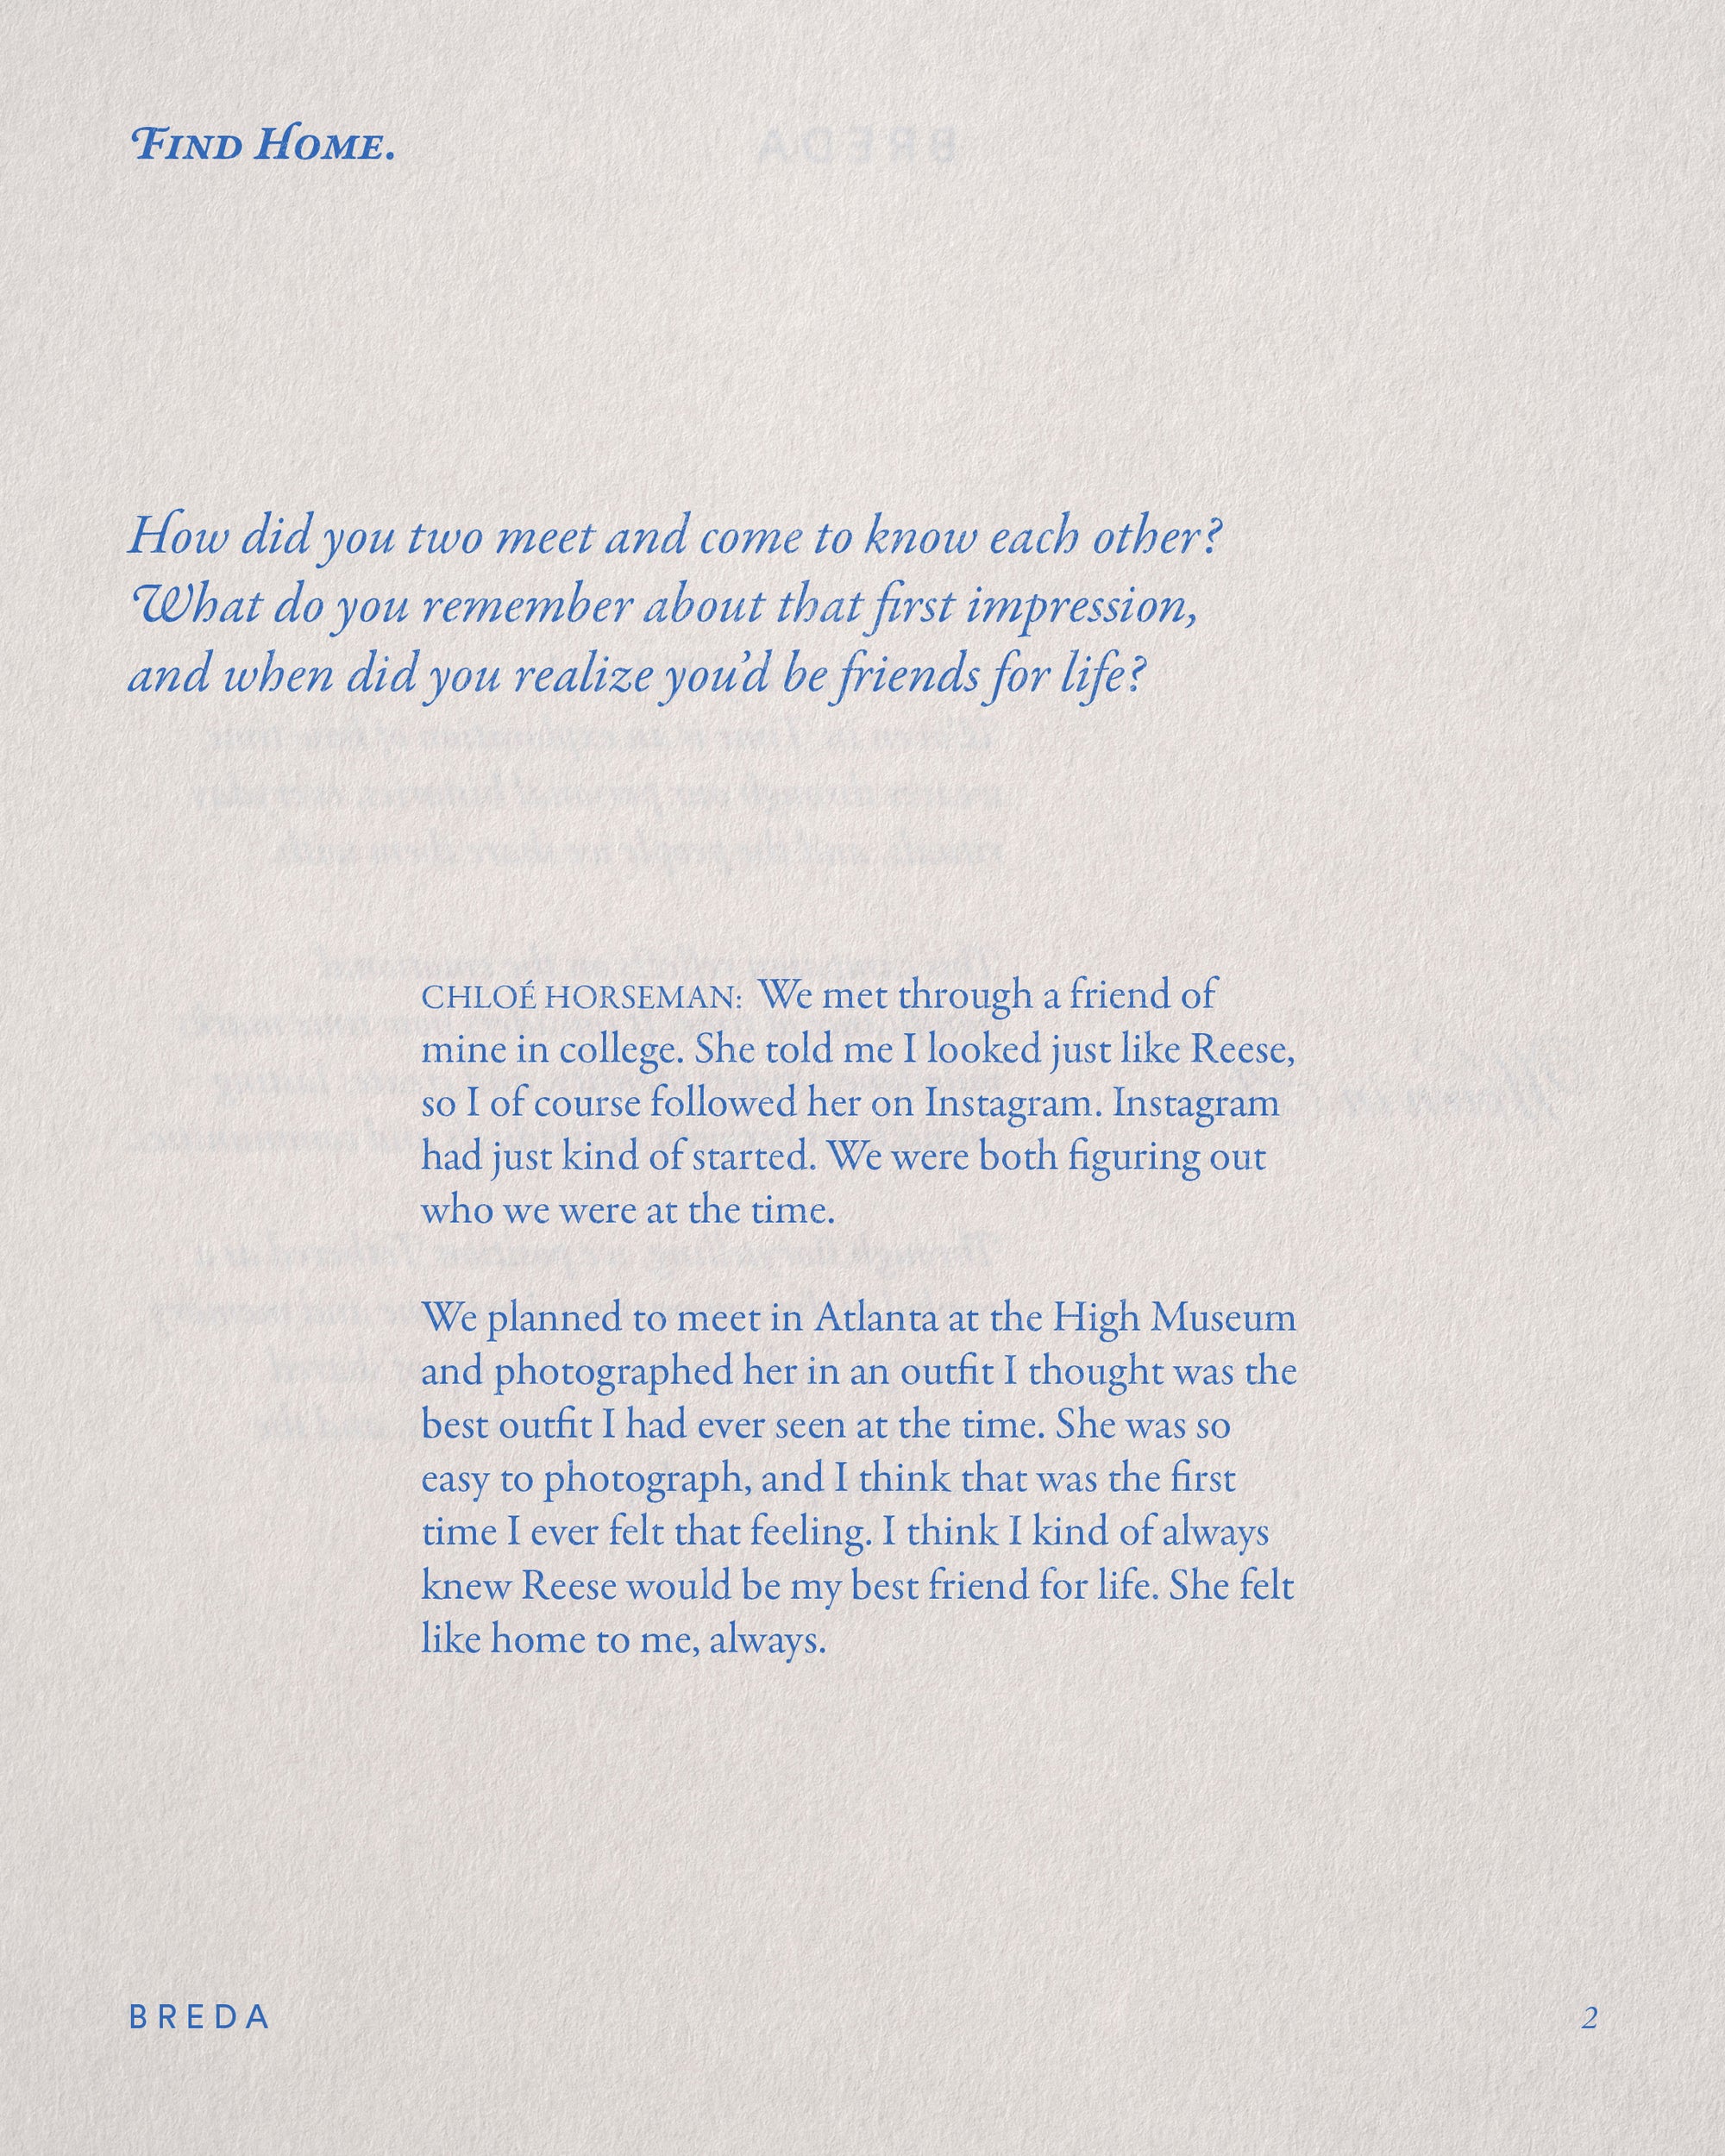 FIND HOME.
How did you two meet and come to know each other?
What do you remember about that first impression,
and when did you realize you'd be friends for life?
CHLOÉ HORSEMAN: We met through a friend of
mine in college. She told me I looked just like Reese,
so I of course followed her on Instagram. Instagram
had just kind of started. We were both figuring out
who we were at the time.
We planned to meet in Atlanta at the High Museum
and photographed her in an outfit I thought was the
best outfit I had ever seen at the time. She was so
easy to photograph, and I think that was the first
time I ever felt that feeling. I think I kind of always
knew Reese would be my best friend for life. She felt
like home to me, always.
BREDA
2